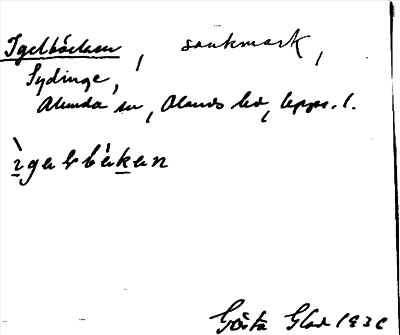 Igelbäcken, sankmark,
Sydinge,
Alunda sn, Olands hd, Upps. l.
ìgəlbäkən
Gösta Glad 193